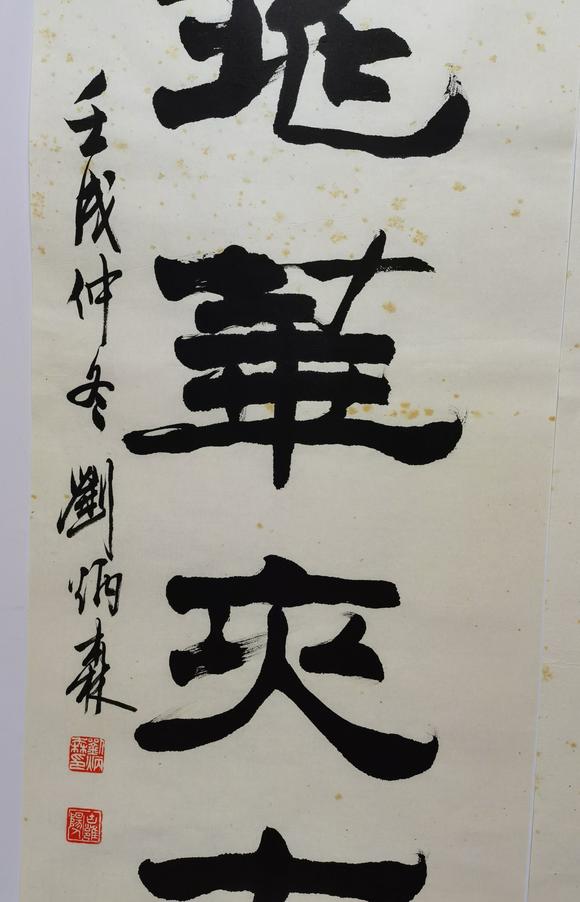 桃華夾
壬戌仲冬劉炳森
劉炳森印